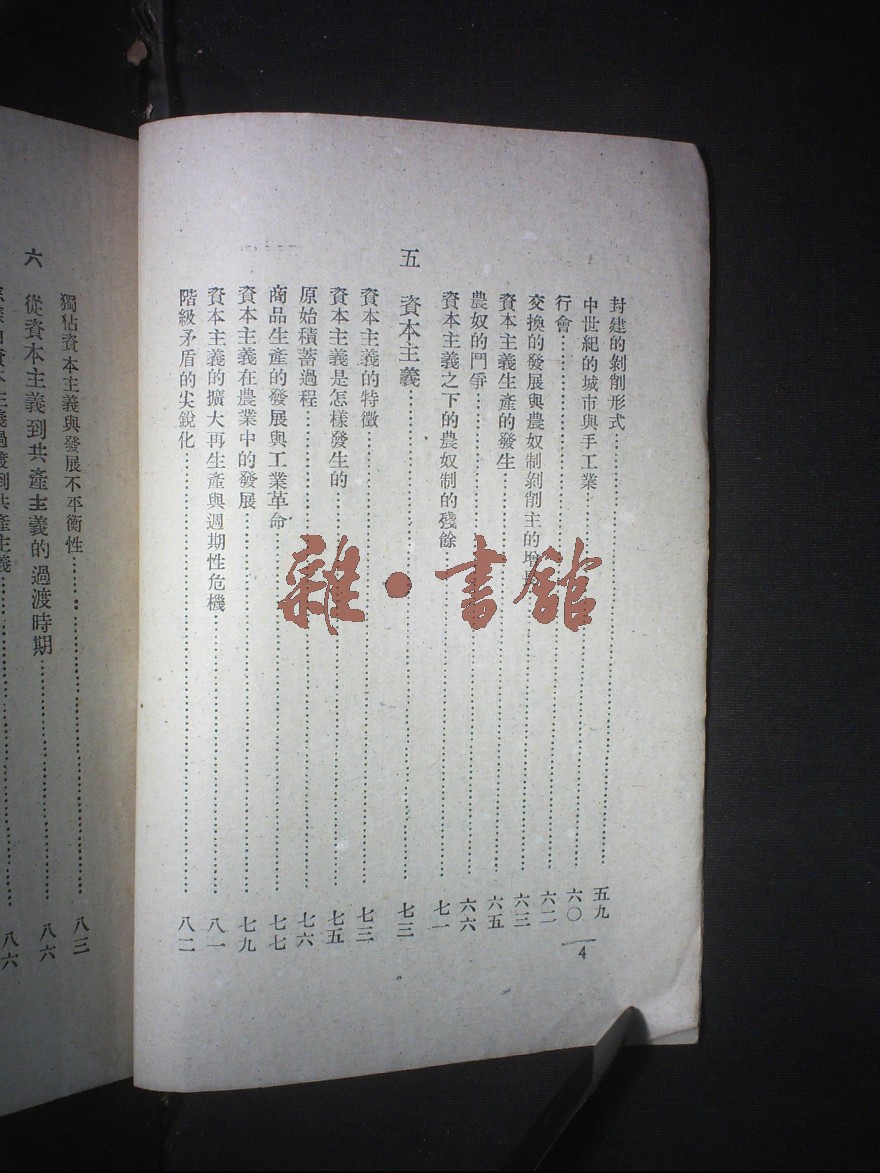 封建的剝削形式……五九
中世紀的城市與手工業……六〇
行會……六二
交換的發展與農奴制剝削主的增……六三
資本主義生產的發生……六五
農奴的鬥爭……六六
資本主義之下的農奴制的殘餘……七一
五 資本主義……七三
資本主義的特徵……七三
資本主義是怎樣發生的……七五
原始積蓄過程……七六
商品生產的發展與工業革命……七七
資本主義在農業中的發展……七九
資本主義的擴大再生產與週期性危機……八一
階級矛盾的尖銳化……八二
4
獨佔資本主義與發展不平衡性……八三
六 從資本主義到共產主義的過渡時期……八六
主義過渡到共產主義……八六
雜·書館